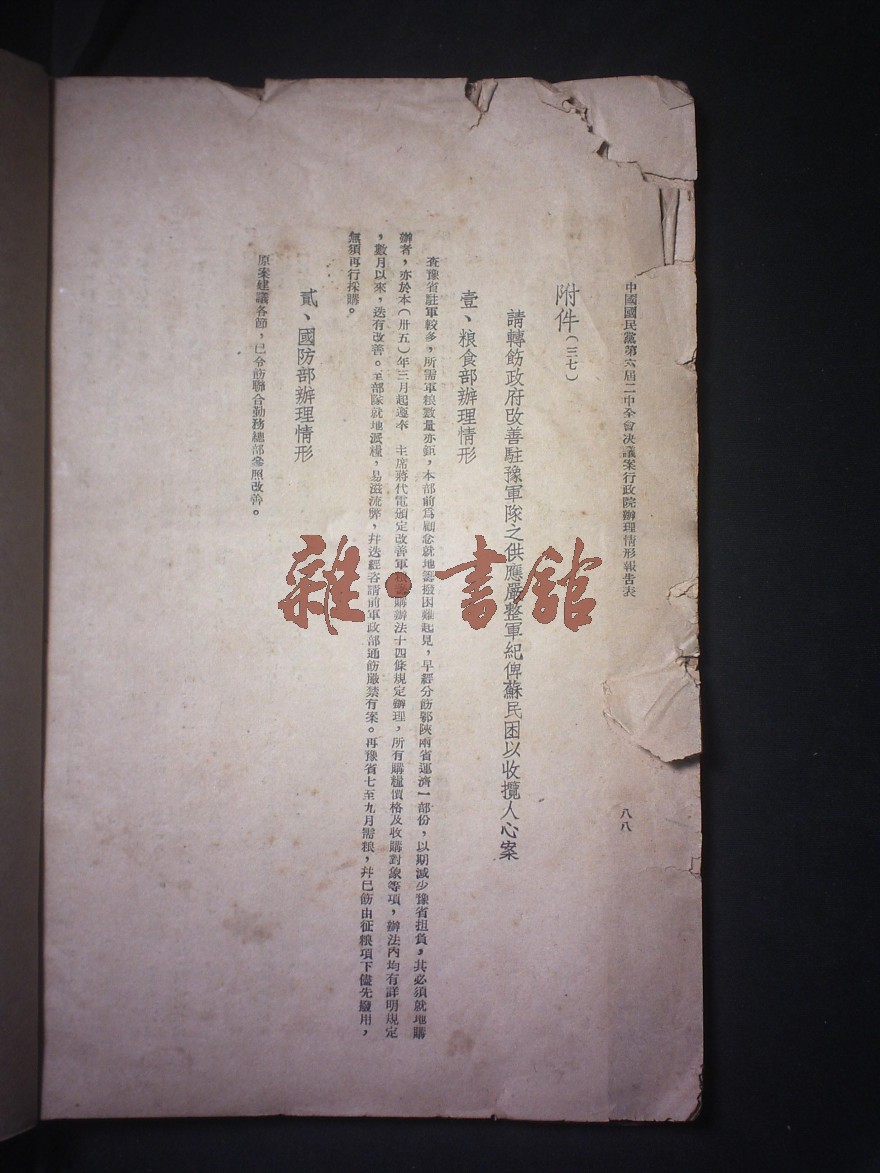 中國國民黨第六屆二中全會决議案行政院辦理情形報告表
八八
附件(三七)
請轉飭政府改善駐豫軍隊之供應嚴整軍紀俾蘇民困以收攬人心案
壹、粮食部辦理情形
查豫省駐軍較多，所需軍粮數量亦鉅，本部前爲顧念就地籌撥困難起見，早經分飭鄂陝兩省運濟一部份，以期減少豫省担負，其必須就地購
辦者，亦於本(卅五)年三月起遵奉　主席蔣代電頒定改善軍粮購辦法十四條規定辦理，所有購糧價格及收購對象等項，辦法內均有詳明規定
，數月以來，迭有改善。至部隊就地派糧，易滋流弊，幷迭經咨請前軍政部通飭嚴禁有案。再豫省七至九月需粮，幷已飭由征粮項下儘先撥用，
無須再行採購。
貳、國防部辦理情形
原案建議各節，已令飭聯合勤務總部參照改善。
雜·書館